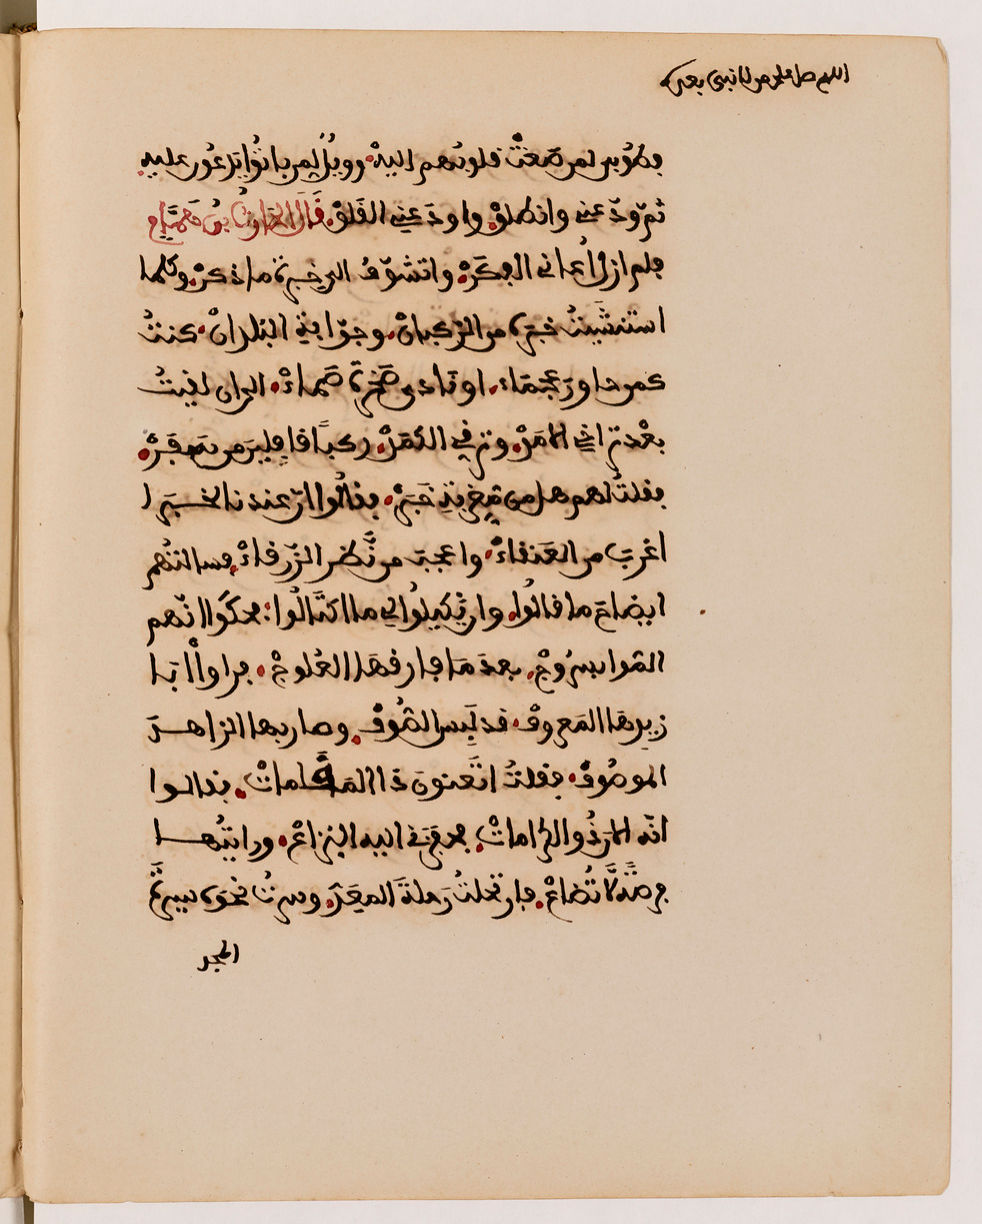 اللهم صل على من لا نبي بعده
فطوبى لمن صغت قلوبهم اليه. وويل لمن باتوا يدعون عليه.
ثم ودعني وانطلق. واودعني القلق. قال الحارث بن همام
فلم ازل اعاني الفكر. واتشوف الى خبرة ما ذكر. وكلما
استنشيت خبره من الركبان. وجوابة البلدان. كنت
كمن حاور عجماء. او نادى صخرة صماء. الى ان لقيت
بعد تراخي الامد. وترقي الكمد. ركبا قافلين من سفر.
فقلت لهم هل من مغربة خبر. فقالوا ان عندنا لخبرا
اغرب من العنقاء. واعجب من نظر الزرقاء. فسالتهم
ايضاح ما قالوا. وان يكيلوا لي ما اكتالوا: فحكوا انهم
المّوا بسروج. بعد ما فارقها العلوج. فراوا ابا
زيدها المعروف. قد لبس الصوف. وصار بها الزاهد
الموصوف. فقلت اتعنون ذا المقامات. فقالوا
انه الان ذو الكرامات. فحفزني اليه النزاع. ورايتها
فرصة لا تضاع. فارتحلت رحلة المعد. وسرت نحوه سير
المجد